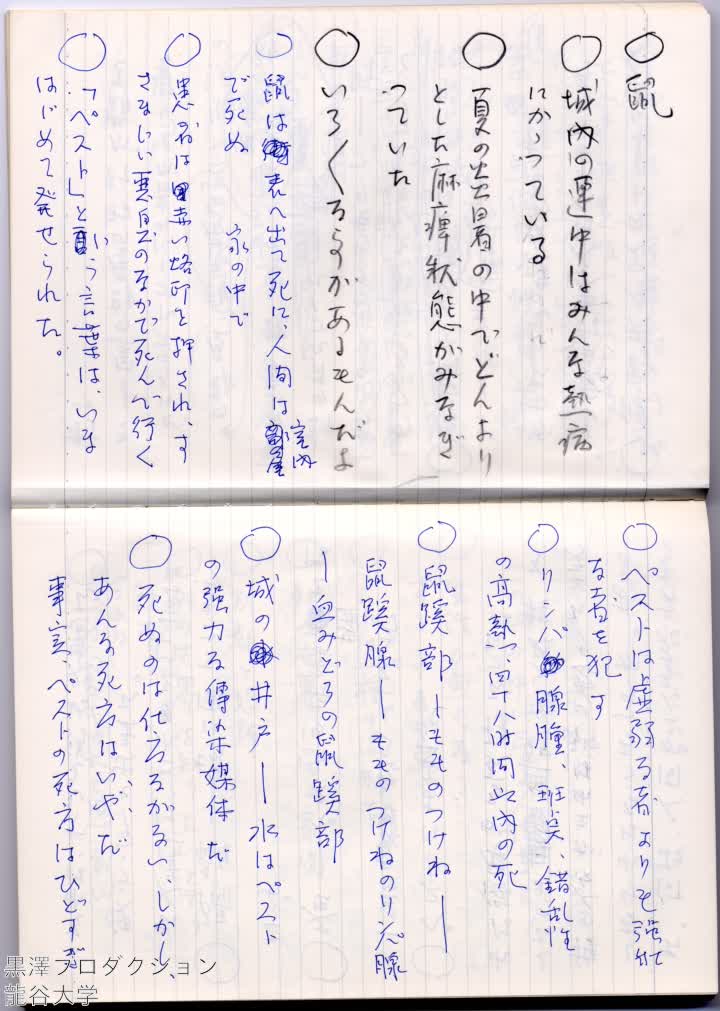 ○ 鼠
○ 城内の連中はみんな熱病
にかゝっている
○ 夏の炎暑の中でどんより
とした麻痺状態がみなぎ
っていた
○ いろ〳〵あるもんだよ
○ 鼠は表へ出て死に、人間は室内
で死ぬ 家の中で
○ 患者は赤い烙印を押され、す
さまじい悪臭のなかで死んで行く
○ 「ペスト」と いう言葉は、いま
はじめて発せられた。
○ ペストは虚弱な者よりも強壮
な者を犯す
○ リンパ腺腫、斑尖、錯乱性
の高熱、四十八時間以内の死
○ 鼠蹊部―もものつけね―
鼠蹊腺―もものつけねのリンパ腺
―血みどろの鼠蹊部
○ 城の井戸―水はペスト
の強力な傳染媒体だ
○ 死ぬのは仕方がない、しかし、
あんな死方はいやだ
事実、ペストの死方はひどすぎ
黒澤プロダクション
龍谷大学